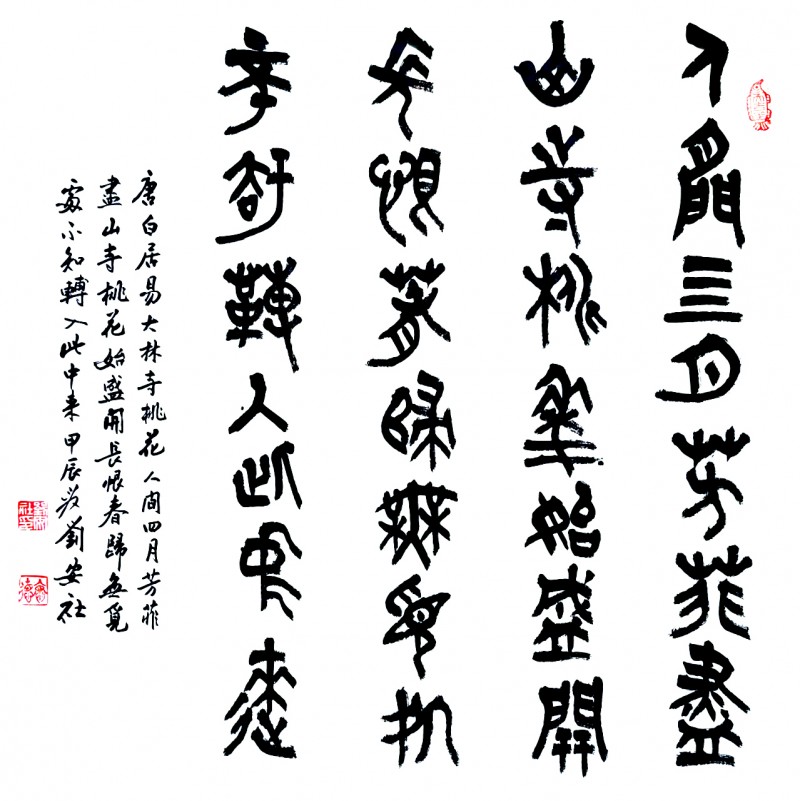 人間四月芳菲盡
山寺桃花始盛開
長恨春歸無覓處
不知轉入此中來
唐白居易大林寺桃花人間四月芳菲
盡山寺桃花始盛開長恨春歸無覓
處不知轉入此中來甲辰歲劉安社